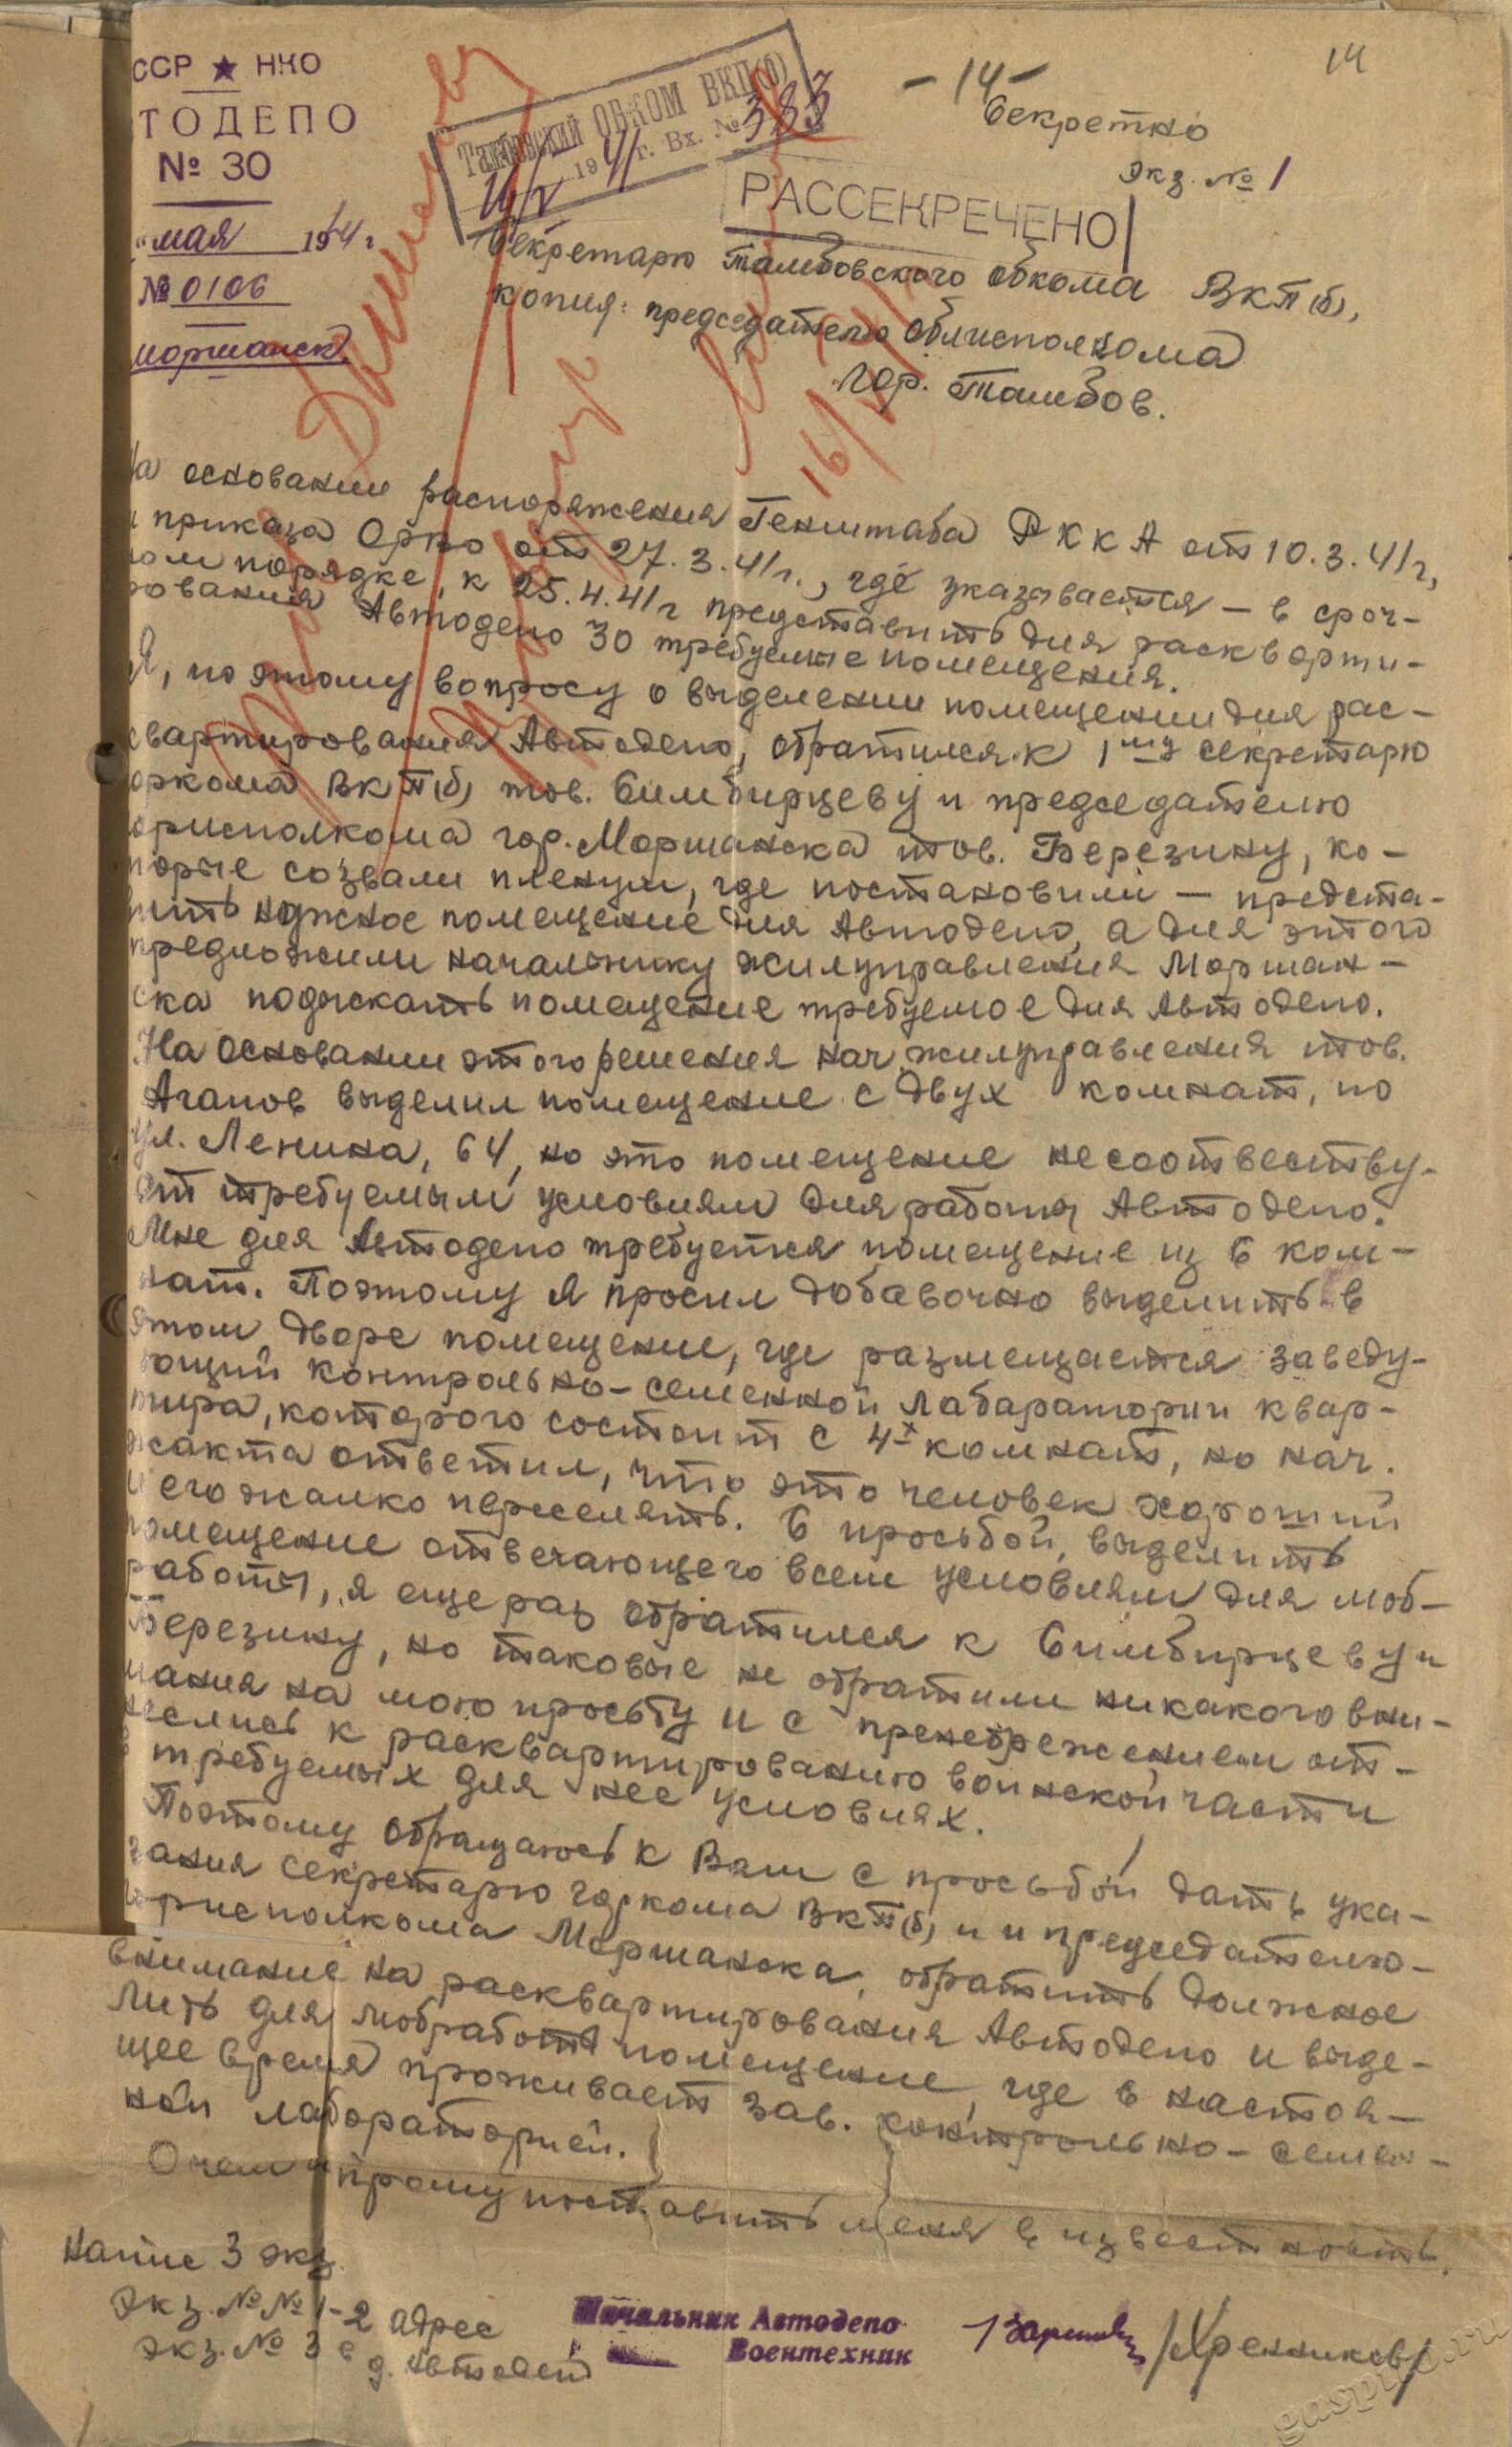 14
-14-
ССР ★ НКО
ТОДЕПО
№ 30
"мая 1941 г
№ 0106
моршанск
Тамбовский ОБКОМ ВКП(б)
16/V 1941 г. Вх. № 383
Секретно
экз. № 1
РАССЕКРЕЧЕНО
Секретарю Тамбовского обкома ВКП(б),
копия: председателю облисполкома
гор. Тамбов.
16/V
а основании распоряжения Генштаба РККА от 10.3.41 г,
и приказа ОрВО от 27.3.41 г., где указывается – в сроч-
ном порядке, к 25.4.41 г представить для раскварти-
рования Автодепо 30 требуемые помещения.
Я, по этому вопросу о выделении помещении для рас-
квартирования Автодепо, обратился к 1му секретарю
оркома ВКП(б) тов. Симбирцеву и председателю
орисполкома гор. Моршанска тов. Березину, ко-
торые созвали пленум, где постановили – предста-
вить нужное помещение для Автодепо, а для этого
предложили начальнику жилуправления Моршан-
ска подыскать помещение требуемое для Автодепо.
На основании этого решения нач. жилуправления тов.
Агапов выделил помещение с двух комнат, по
ул. Ленина, 64, но это помещение несоответству-
ет требуемым условиям для работы Автодепо.
Мне для Автодепо требуется помещение из 6 ком-
нат. Поэтому я просил добавочно выделить в
этом дворе помещение, где размещается заведу-
ющий контрольно-семенной лабаратории квар-
тира, которого состоит с 4х комнат, но нач.
жакта ответил, что это человек хороший
и его жалко переселять. С просьбой, выделить
помещение отвечающего всем условиям для моб-
работы, я еще раз обратился к Симбирцеву и
Березину, но таковые не обратили никакого вни-
мания на мою просьбу и с пренебрежением от-
неслись к расквартированию воинской части
в требуемых для нее условиях.
Поэтому обращаюсь к Вам с просьбой дать ука-
зания секретарю горкома ВКП(б) и и председателю
горисполкома Моршанска, обратить должное
внимание на расквартирования Автодепо и выде-
лить для мобработы помещение, где в настоя-
щее время проживает зав. контрольно-семен-
ной лабораторией.
О чем и прошу поставить меня в известность.
Напис 3 экз.
экз. №№ 1-2 адрес
экз. № 3 в д. Автодепо
Начальник Автодепо
Воентехник
/Хренников/
gaspito.ru